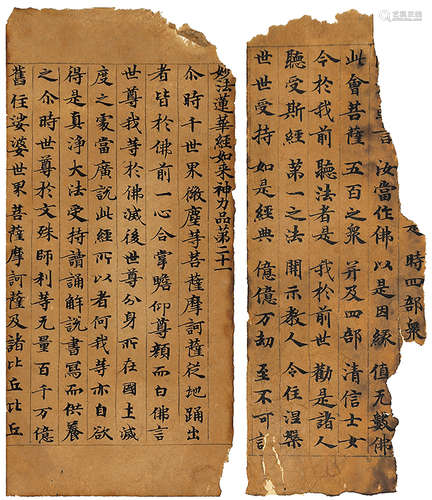 時四部衆
言 汝當作佛 以是因緣 值无數佛
此會菩薩 五百之衆 并及四部 清信士女
今於我前 聽法者是 我於前世 勸是諸人
聽受斯經 第一之法 開示教人 令住涅槃
世世受持 如是經典 億億万劫 至不可議
妙法蓮華經如來神力品第二十一
尒時千世界微塵等菩薩摩訶薩從地踊出
者皆於佛前一心合掌瞻仰尊顏而白佛言
世尊我等於佛滅後世尊分身所在國土滅
度之處當廣說此經所以者何我等亦自欲
得是真净大法受持讀誦解說書寫而供養
之尒時世尊於文殊師利等无量百千万億
舊住娑婆世界菩薩摩訶薩及諸比丘比丘